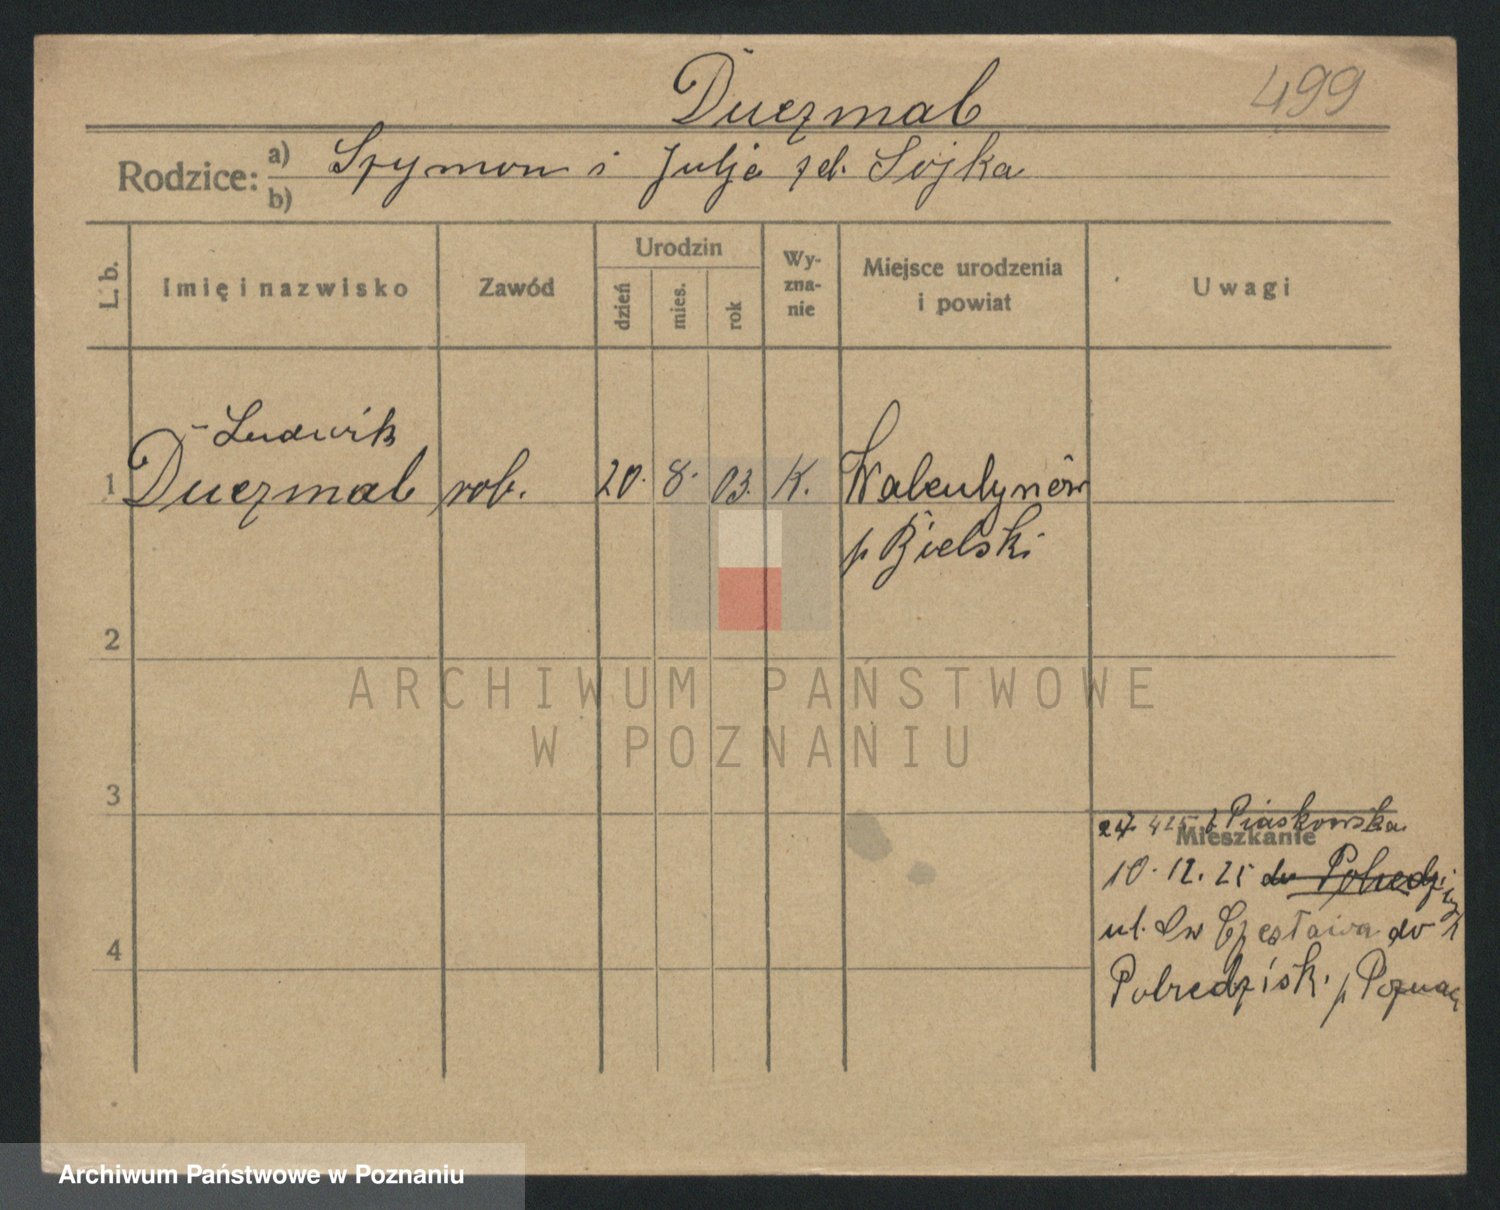 Duczmal
499
Rodzice: a) Szymon i Julja zd. Sójka
b)
L. b.
Imię i nazwisko
Zawód
Urodzin
dzień
mies.
rok
Wy-
zna-
nie
Miejsce urodzenia
i powiat
Uwagi
Ludwik
1 Duczmal rob. 20. 8. 03. K. Walentynów
p Bielski
2
ARCHIWUM PAŃSTWOWE
W POZNANIU
3
27. 4 25 Piaskowska
Mieszkanie
10. 12. 25 do
ul. Św Czesława do
4
Pobiedzisk. p Poznań
Archiwum Państwowe w Poznaniu